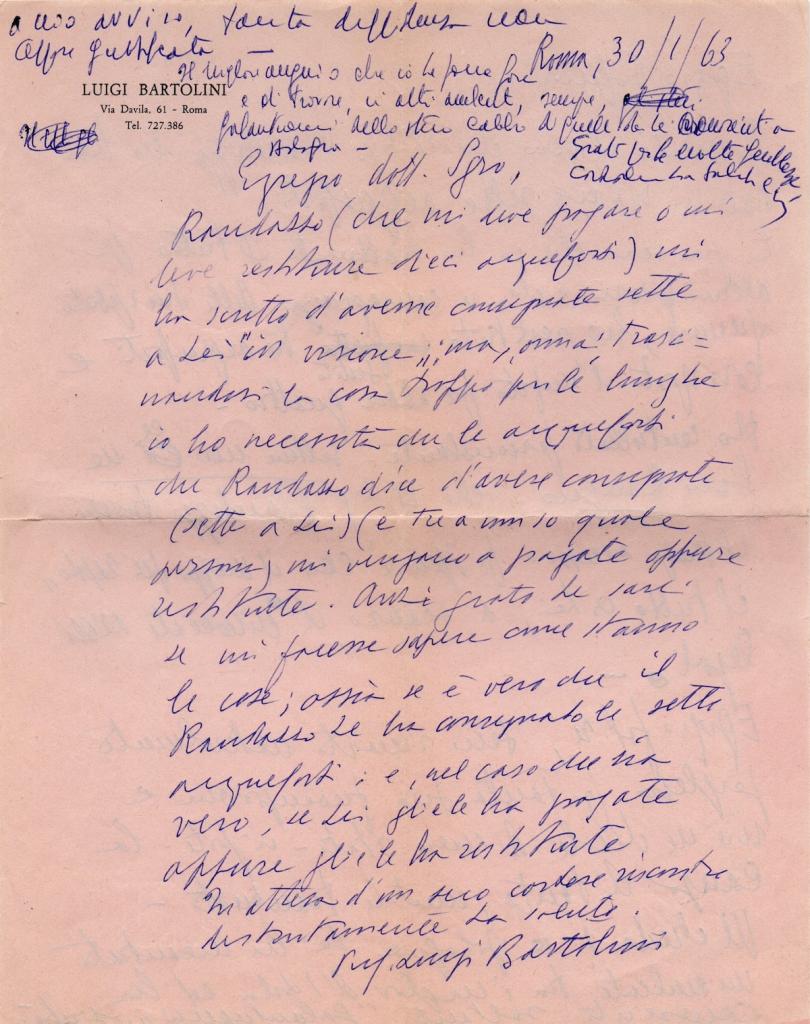 a mio avviso, tanta diffidenza non
appare giustificata —
Roma, 30/1/63
Il miglior augurio che io Le possa fare
LUIGI BARTOLINI
Via Davila, 61 - Roma
Tel. 727.386
e di trovare, in altri ambienti, sempre,
galantuomini dello stesso calibro di quelli
Bologna —
Grato per le molte gentilezze,
Egregio dott. Sgro,
Randasso (che mi deve pagare o mi
deve restituire dieci acqueforti) mi
ha scritto d'averne consegnate sette
a Lei "in visione"; ma, ormai trasci=
nandosi la cosa troppo per le lunghe
io ho necessità che le acqueforti
che Randasso dice d'avere consegnate
(sette a Lei) (e tre a non so quale
persona) mi vengano o pagate oppure
restituite. Anzi grato Le sarei
se mi facesse sapere come stanno
le cose; ossia se è vero che il
Randasso Le ha consegnato le sette
acqueforti; e, nel caso che sia
vero, se Lei gliele ha pagate
oppure gliele ha restituite
In attesa d'un suo cortese riscontro
distintamente La saluto.
Prof. Luigi Bartolini